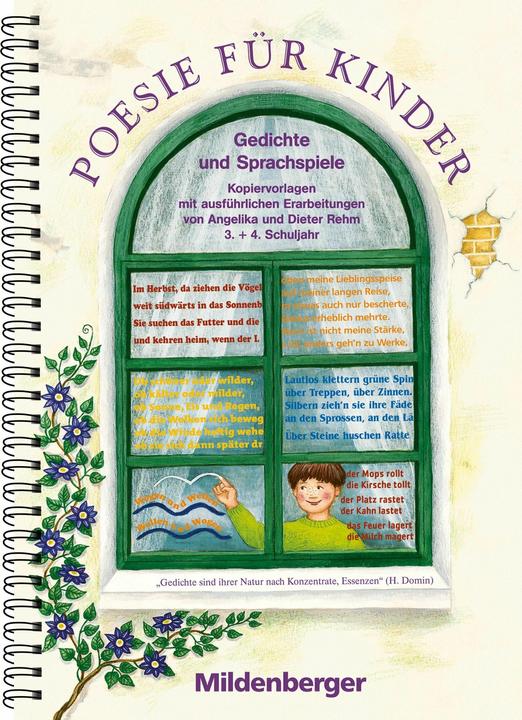 POESIE FÜR KINDER
Gedichte
und Sprachspiele
Kopiervorlagen
mit ausführlichen Erarbeitungen
von Angelika und Dieter Rehm
3. + 4. Schuljahr
Im Herbst, da ziehen die Vögel
weit südwärts in das Sonnenb
Sie suchen das Futter und die
und kehren heim, wenn der L
meine Lieblingsspeise
meiner langen Reise,
auch nur bescherte,
erheblich mehrte.
ist nicht meine Stärke,
geh'n zu Werke,
oder wilder,
ob kälter oder milder,
ob Sonne, Eis und Regen,
ob die Wolken sich beweg
ob die Winde heftig wehe
sich dann später dr
Lautlos klettern grüne Spin
über Treppen, über Zinnen.
Silbern zieh'n sie ihre Fäde
an den Sprossen, an den Lä
Über Steine huschen Ratte
Wogen und Wellen
Wellen und Wogen
der Mops rollt
die Kirsche tollt
der Platz rastet
der Kahn lastet
das Feuer lagert
die Milch magert
„Gedichte sind ihrer Natur nach Konzentrate, Essenzen“ (H. Domin)
Mildenberger